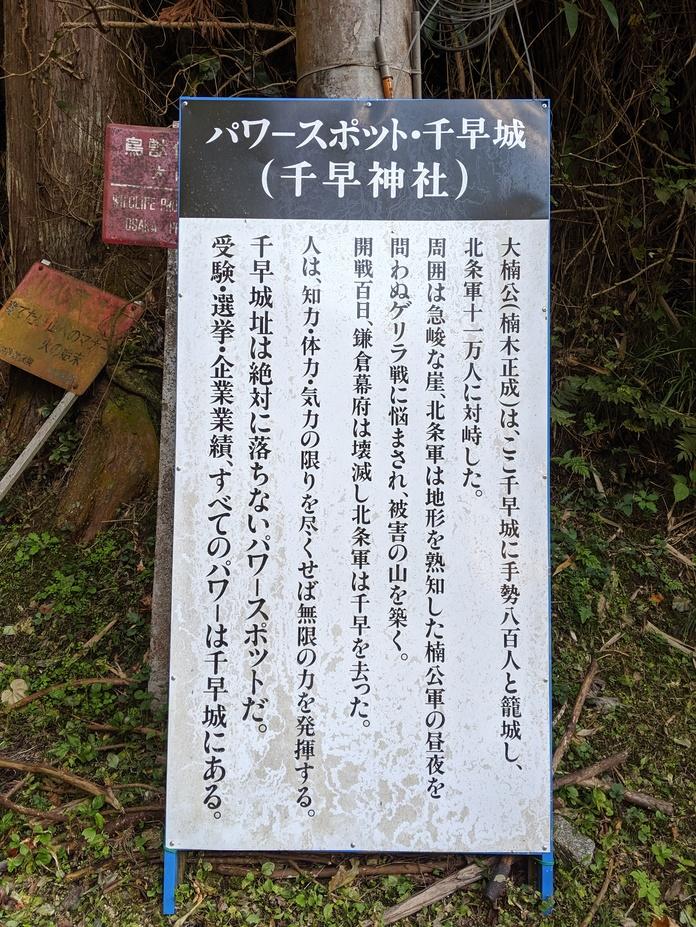 パワースポット・千早城
(千早神社)
大楠公(楠木正成)は、ここ千早城に手勢八百人と籠城し、
北条軍十一万人に対峙した。
周囲は急峻な崖、北条軍は地形を熟知した楠公軍の昼夜を
問わぬゲリラ戦に悩まされ、被害の山を築く。
開戦百日、鎌倉幕府は壊滅し北条軍は千早を去った。
人は、知力・体力・気力の限りを尽くせば無限の力を発揮する。
千早城址は絶対に落ちないパワースポットだ。
受験・選挙・企業業績、すべてのパワーは千早城にある。
鳥獣
WILDLIFE
OSAKA
火の始末